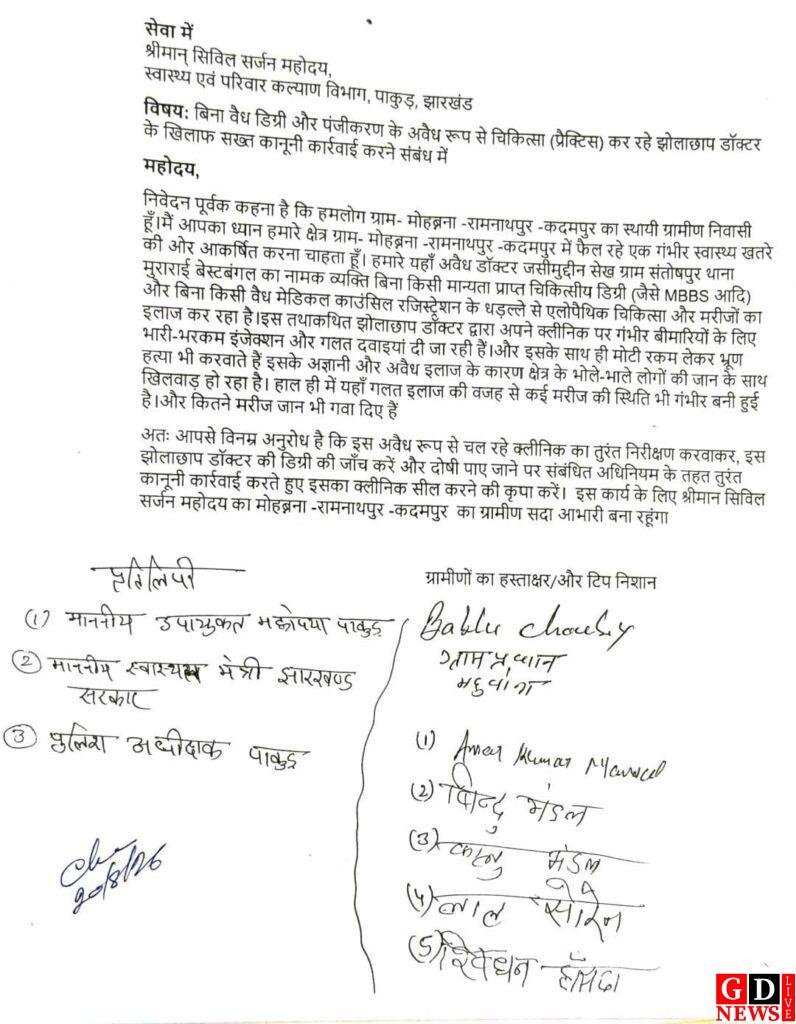 सेवा में
श्रीमान् सिविल सर्जन महोदय,
स्वास्थ्य एवं परिवार कल्याण विभाग, पाकुड़, झारखंड
विषय: बिना वैध डिग्री और पंजीकरण के अवैध रूप से चिकित्सा (प्रैक्टिस) कर रहे झोलाछाप डॉक्टर
के खिलाफ सख्त कानूनी कार्रवाई करने संबंध में
महोदय,
निवेदन पूर्वक कहना है कि हमलोग ग्राम- मोहब्रना -रामनाथपुर -कदमपुर का स्थायी ग्रामीण निवासी
हूँ।मैं आपका ध्यान हमारे क्षेत्र ग्राम- मोहब्रना -रामनाथपुर -कदमपुर में फैल रहे एक गंभीर स्वास्थ्य खतरे
की ओर आकर्षित करना चाहता हूँ। हमारे यहाँ अवैध डॉक्टर जसीमुद्दीन सेख ग्राम संतोषपुर थाना
मुराराई बेस्टबंगल का नामक व्यक्ति बिना किसी मान्यता प्राप्त चिकित्सीय डिग्री (जैसे MBBS आदि)
और बिना किसी वैध मेडिकल काउंसिल रजिस्ट्रेशन के धड़ल्ले से एलोपैथिक चिकित्सा और मरीजों का
इलाज कर रहा है।इस तथाकथित झोलाछाप डॉक्टर द्वारा अपने क्लीनिक पर गंभीर बीमारियों के लिए
भारी-भरकम इंजेक्शन और गलत दवाइयां दी जा रही हैं।और इसके साथ ही मोटी रकम लेकर भ्रूण
हत्या भी करवाते हैं इसके अज्ञानी और अवैध इलाज के कारण क्षेत्र के भोले-भाले लोगों की जान के साथ
खिलवाड़ हो रहा है। हाल ही में यहाँ गलत इलाज की वजह से कई मरीज की स्थिति भी गंभीर बनी हुई
है।और कितने मरीज जान भी गवा दिए हैं
अतः आपसे विनम्र अनुरोध है कि इस अवैध रूप से चल रहे क्लीनिक का तुरंत निरीक्षण करवाकर, इस
झोलाछाप डॉक्टर की डिग्री की जाँच करें और दोषी पाए जाने पर संबंधित अधिनियम के तहत तुरंत
कानूनी कार्रवाई करते हुए इसका क्लीनिक सील करने की कृपा करें। इस कार्य के लिए श्रीमान सिविल
सर्जन महोदय का मोहब्रना -रामनाथपुर -कदमपुर का ग्रामीण सदा आभारी बना रहूंगा
प्रतिलिपी
(1) माननीय उपायुक्त महोदया पाकुड़
(2) माननीय स्वास्थ्य मंत्री झारखण्ड
सरकार
(3) पुलिश अधीक्षक पाकुड़
20/8/26
ग्रामीणों का हस्ताक्षर/और टिप निशान
Bablu Choubey
ग्राम प्रधान
(1) Amar Kumar Mandal
(2) बिन्दु मंडल
(3) कालु मंडल
(4) लाल सोरेन
(5) हाँसदा
GD
NEWS
LIVE